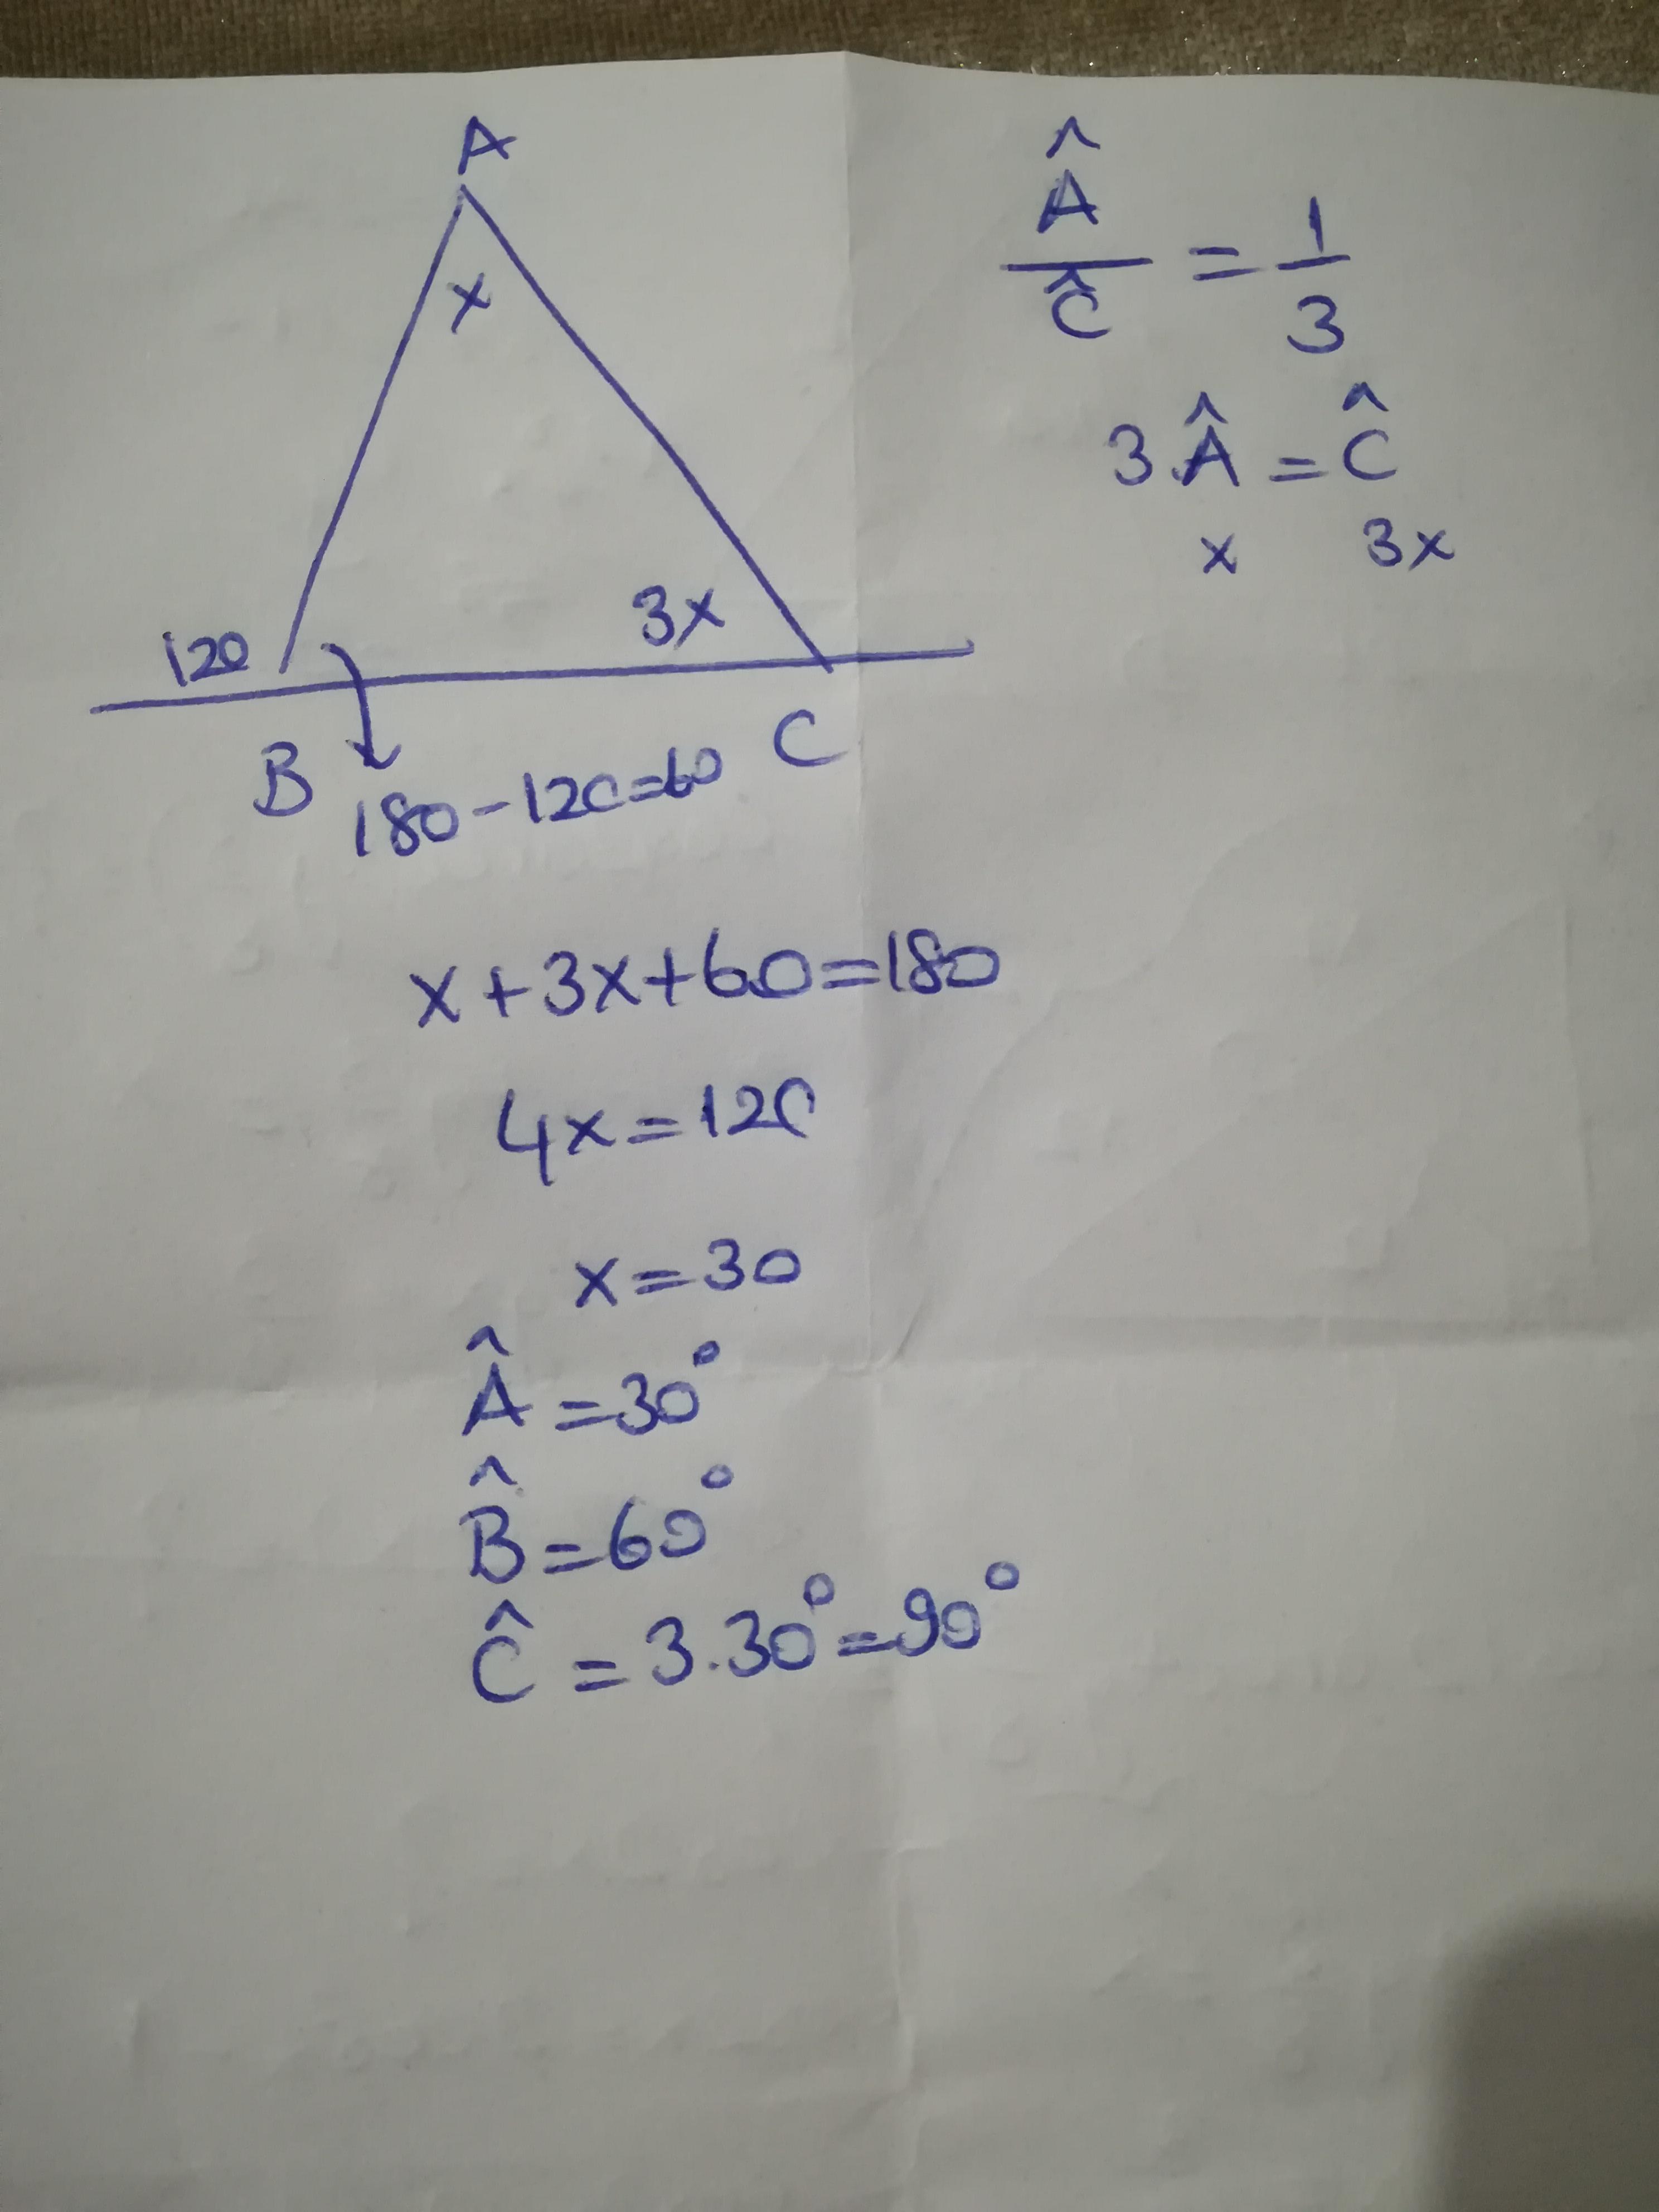 A
x
120
3x
B
C
180-120=60
Â/Ĉ = 1/3
3.Â=Ĉ
x 3x
x+3x+60=180
4x=120
x=30
Â=30°
B̂=60°
Ĉ=3.30°=90°